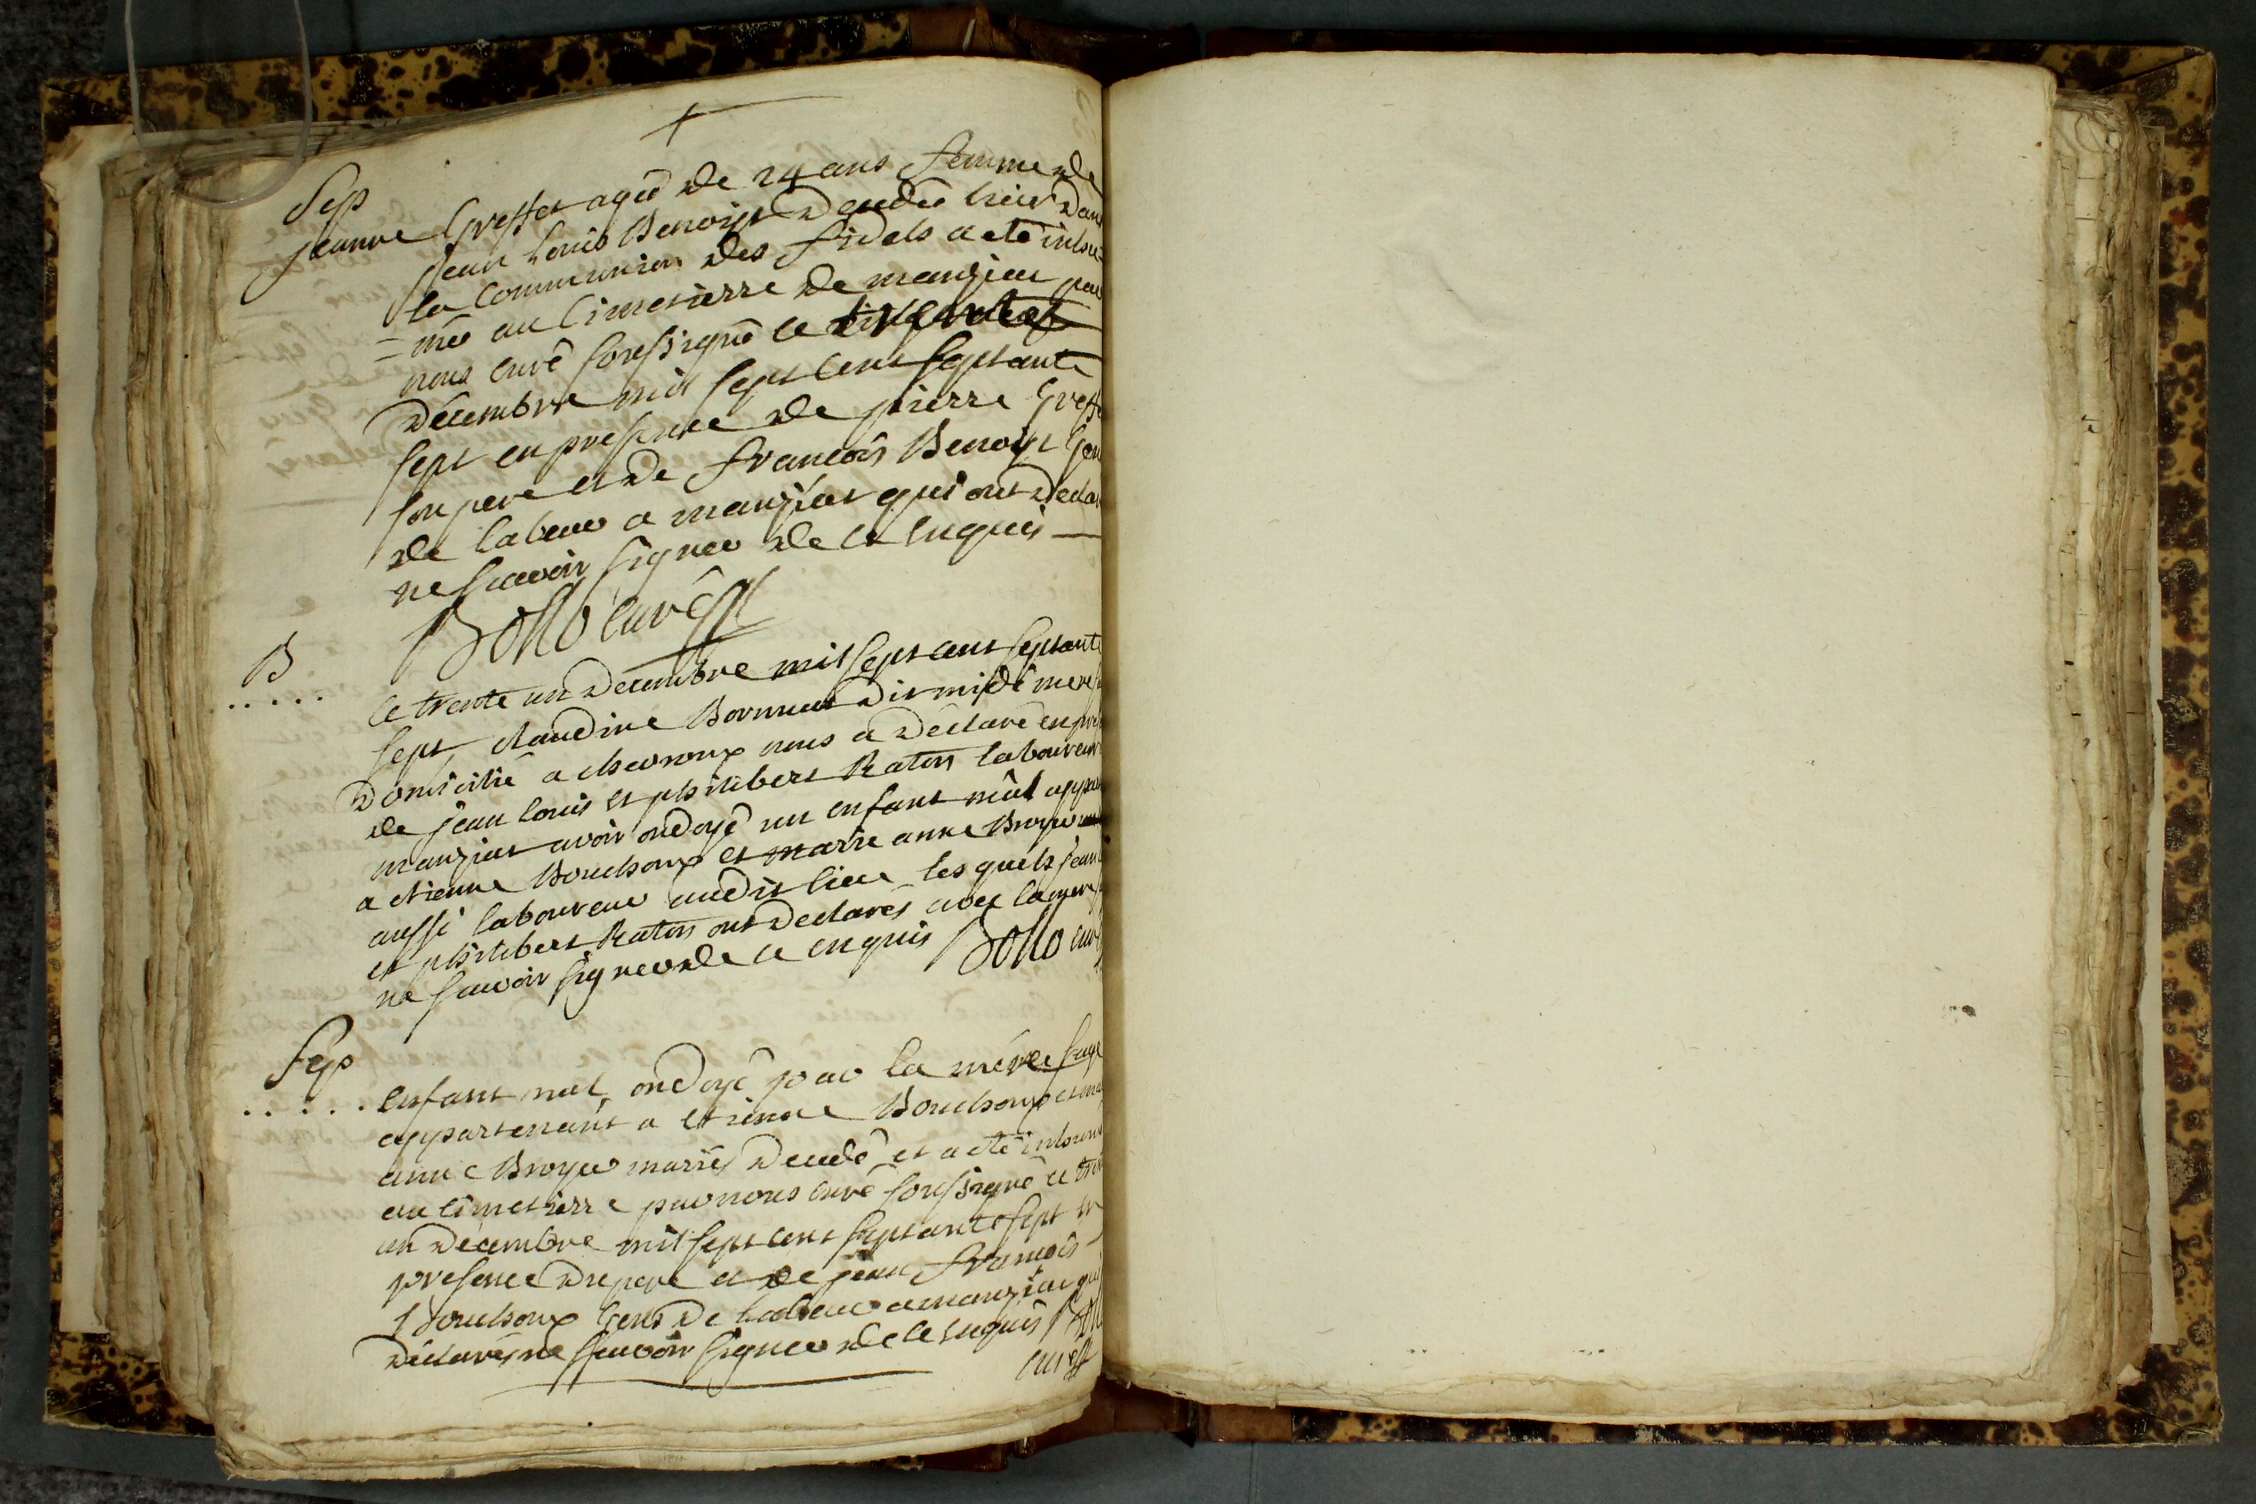 Sep
jeanne Greffet agée de 24 ans femme de
jean Louis Benoist decedée hier dans
la Communion des fidels a eté inhu=
=mée au Cimetierre de manziat par
nous curé soussigné ce
décembre mil sept cent septante
sept en presence de pierre Greffe
son pere et de françois Benoist Gen
de labeur a manziat qui ont decla
ne scavoir signer de ce enquis
Bollo curé
B
Ce trente un decembre mil sept cent septante
sept, claudine dit mere
domicilié a chevroux nous a déclaré en pre
de jean louis et philibert Raton laboureur
manziat avoir ondoyé un enfant mâl appar
a etienne Bouchoux et marie anne Broyer
aussi laboureur audit lieu les quels jean
et philibert Raton ont declarés avec la mere
ne scavoir signer de ce enquis Bollo cur
Sep
Enfant mal ondoyé par la mére sage
appartenant a etienne Bouchoux et ma
anne Broyer mariés decedé et a eté inhumé
au cimetierre par nous curé soussigné ce tren
un decembre mil sept cent septante sept en
presence du pere et de jean françois
Bouchoux Gens de labeur a manziat qui
déclarés ne scavoir signer de ce enquis Boll
curé